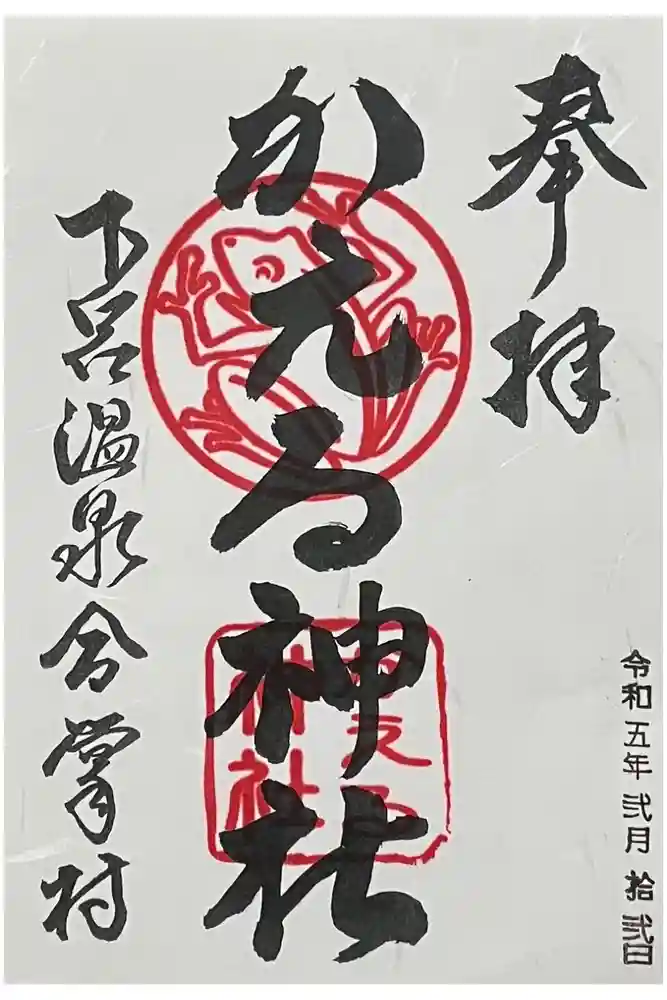 奉拝
かえる神社
下呂温泉合掌村
令和五年弐月拾弐日